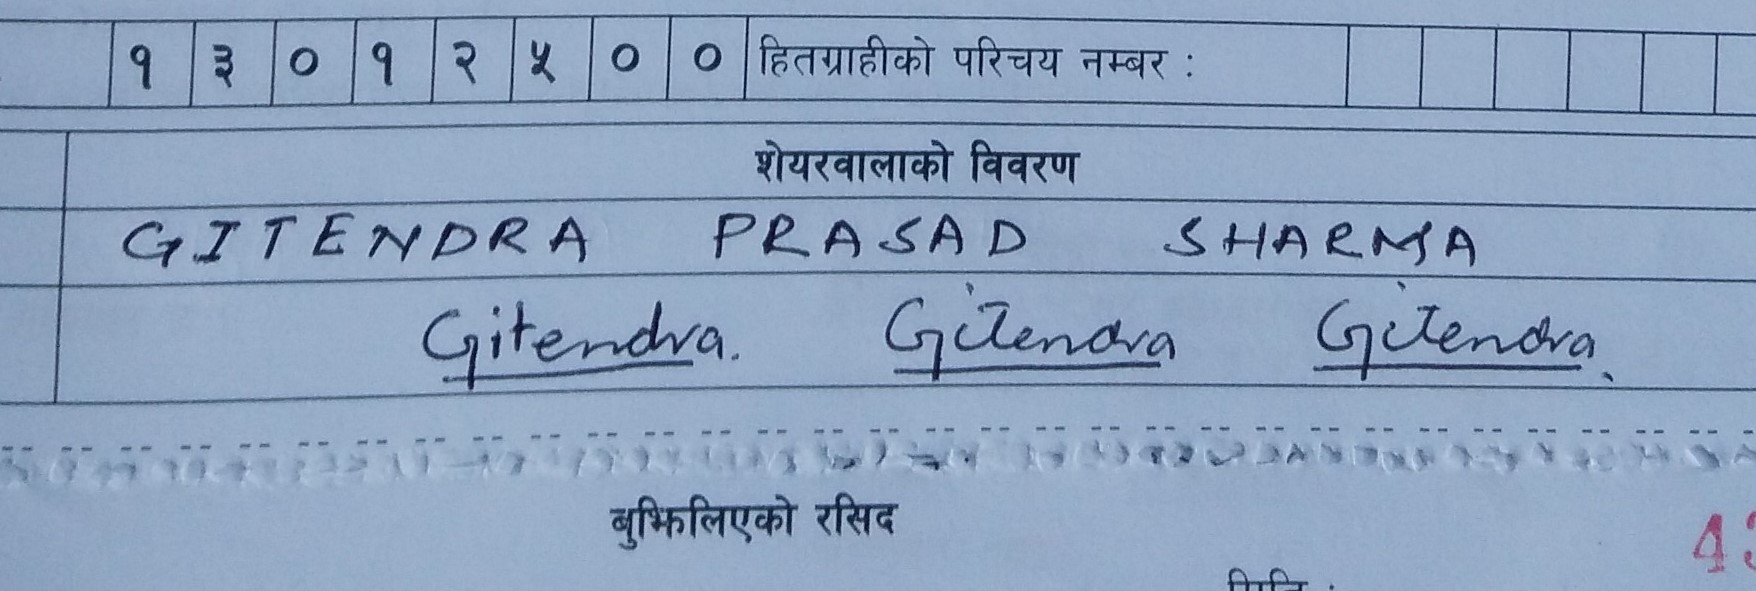 १ ३ ० १ २ ५ ० ० हितग्राहीको परिचय नम्बर :
शेयरवालाको विवरण
GITENDRA PRASAD SHARMA
Gitendra. Gitendra Gitendra.
बुझिलिएको रसिद
4
मिति :